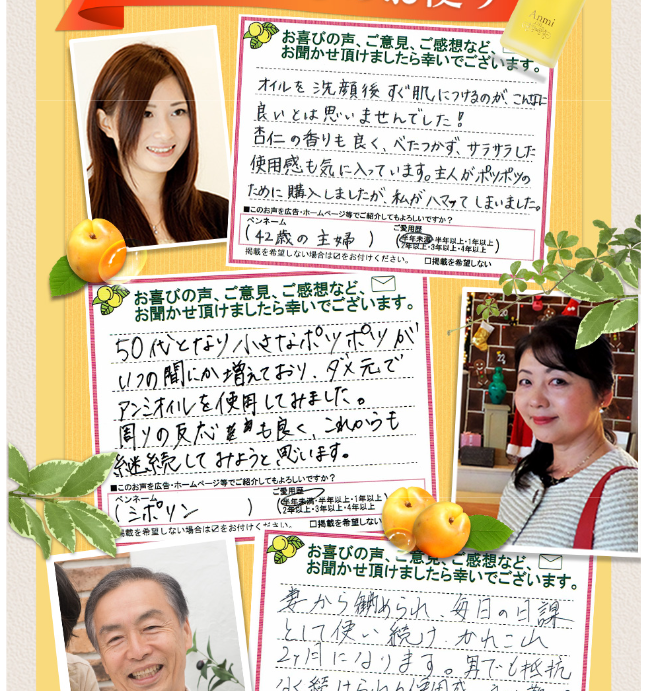 Anmi
お喜びの声、ご意見、ご感想など、
お聞かせ頂けましたら幸いでございます。
オイルを洗顔後すぐ肌につけるのが、こんなに
良いとは思いませんでした!
杏仁の香りも良く、べたつかず、サラサラした
使用感も気に入っています。主人がポツポツの
ために購入しましたが、私がハマってしまいました。
■このお声を広告・ホームページ等でご紹介してもよろしいですか?
ペンネーム
ご愛用歴
(42歳の主婦)
(半年未満・半年以上・1年以上)
2年以上・3年以上・4年以上
掲載を希望しない場合は☑をお付けください。 □掲載を希望しない
お喜びの声、ご意見、ご感想など、
お聞かせ頂けましたら幸いでございます。
50代となり小さなポツポツが
いつの間にか増えており、ダメ元で
アンミオイルを使用してみました。
周りの反応も良く、これからも
継続してみようと思います。
■このお声を広告・ホームページ等でご紹介してもよろしいですか?
ペンネーム
ご愛用歴
(シポリン)
(半年未満・半年以上・1年以上)
2年以上・3年以上・4年以上
掲載を希望しない場合は☑をお付けください。 □掲載を希望しない
お喜びの声、ご意見、ご感想など、
お聞かせ頂けましたら幸いでございます。
妻から勧められ、毎日の日課
として使い続け かれこれ
2ヶ月になります。男でも抵抗
なく続けられる使用感